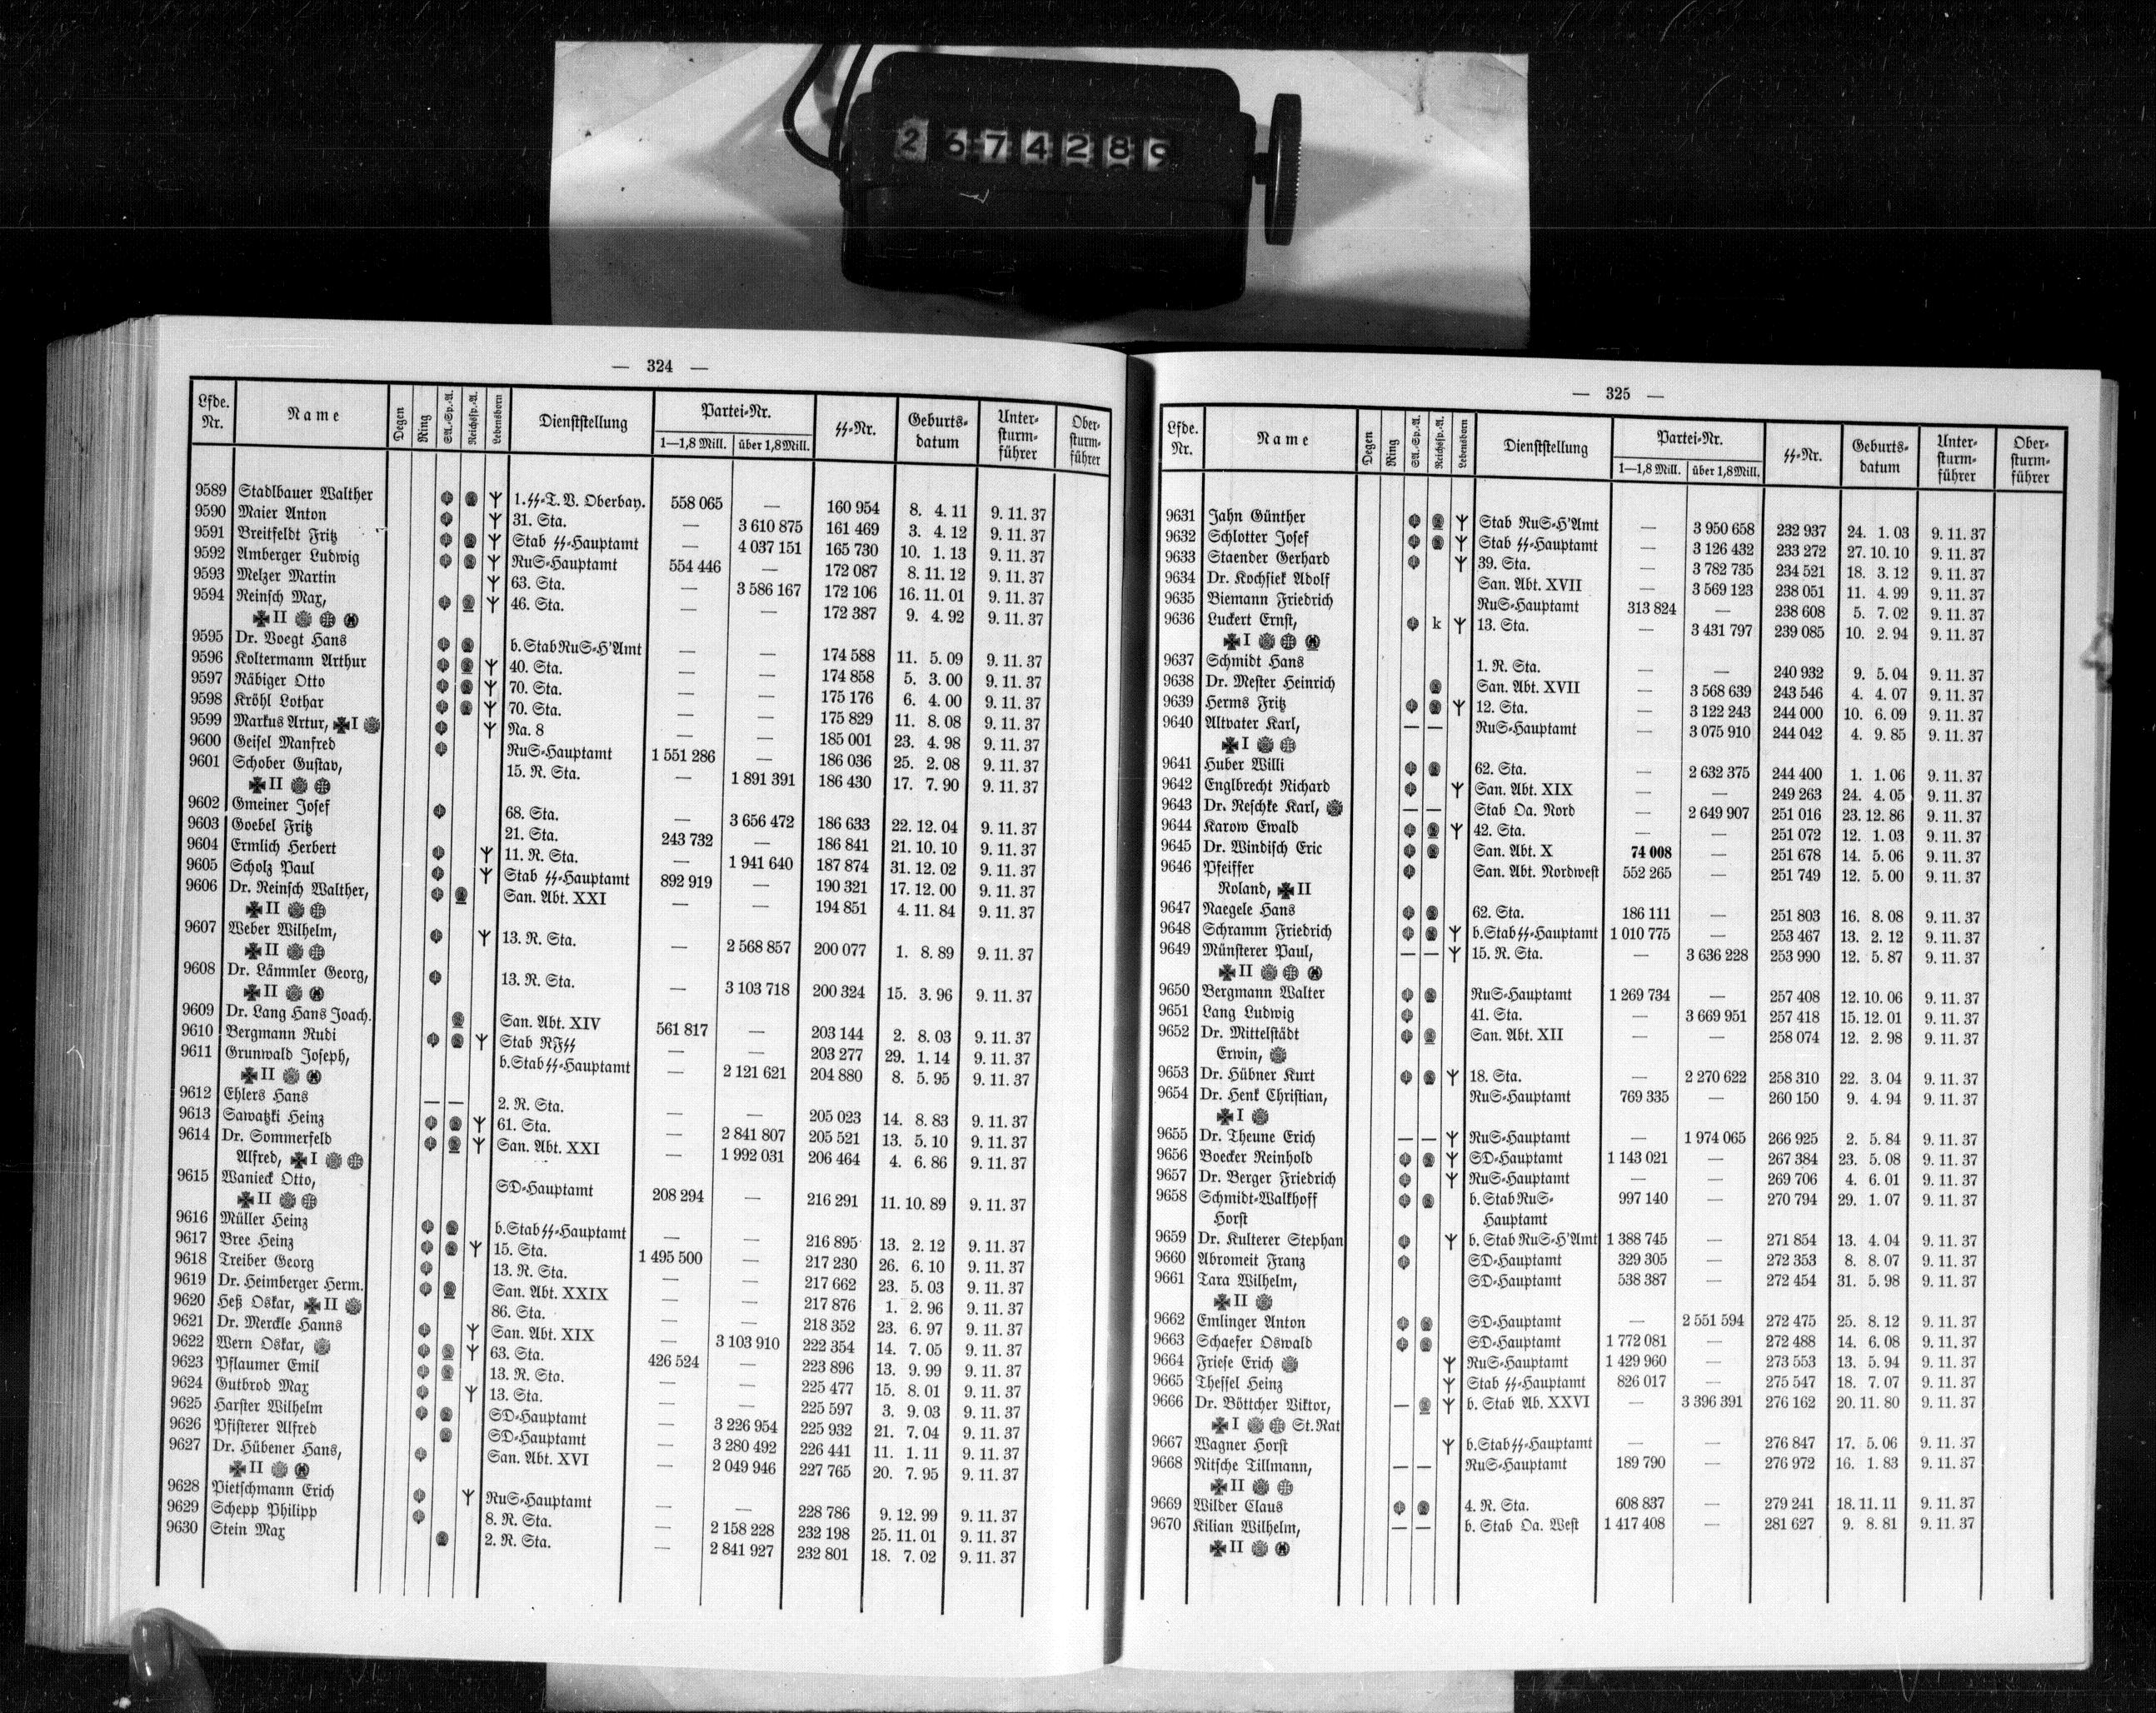 2674289
— 324 —
Lfde. Nr. Name Degen Ring SA.-Sp.-A. Reichssp.-A. Lebensborn Dienststellung Partei-Nr. 1—1,8 Mill. über 1,8 Mill. SS-Nr. Geburts-datum Unter-sturm-führer Ober-sturm-führer
9589 Stadlbauer Walther 1. SS-T. V. Oberbay. 558 065 — 160 954 8. 4. 11 9. 11. 37
9590 Maier Anton 31. Sta. — 3 610 875 161 469 3. 4. 12 9. 11. 37
9591 Breitfeldt Fritz Stab SS-Hauptamt — 4 037 151 165 730 10. 1. 13 9. 11. 37
9592 Amberger Ludwig RuS-Hauptamt 554 446 — 172 087 8. 11. 12 9. 11. 37
9593 Melzer Martin 63. Sta. — 3 586 167 172 106 16. 11. 01 9. 11. 37
9594 Reinsch Max, 46. Sta. — — 172 387 9. 4. 92 9. 11. 37
II
9595 Dr. Voegt Hans b. Stab RuS-H'Amt — — 174 588 11. 5. 09 9. 11. 37
9596 Koltermann Arthur 40. Sta. — — 174 858 5. 3. 00 9. 11. 37
9597 Räbiger Otto 70. Sta. — — 175 176 6. 4. 00 9. 11. 37
9598 Kröhl Lothar 70. Sta. — — 175 829 11. 8. 08 9. 11. 37
9599 Markus Artur, I Na. 8 — — 185 001 23. 4. 98 9. 11. 37
9600 Geisel Manfred RuS-Hauptamt 1 551 286 — 186 036 25. 2. 08 9. 11. 37
9601 Schober Gustav, 15. R. Sta. — 1 891 391 186 430 17. 7. 90 9. 11. 37
II
9602 Gmeiner Josef 68. Sta. — 3 656 472 186 633 22. 12. 04 9. 11. 37
9603 Goebel Fritz 21. Sta. 243 732 — 186 841 21. 10. 10 9. 11. 37
9604 Ermlich Herbert 11. R. Sta. — 1 941 640 187 874 31. 12. 02 9. 11. 37
9605 Scholz Paul Stab SS-Hauptamt 892 919 — 190 321 17. 12. 00 9. 11. 37
9606 Dr. Reinsch Walther, San. Abt. XXI — — 194 851 4. 11. 84 9. 11. 37
II
9607 Weber Wilhelm, 13. R. Sta. — 2 568 857 200 077 1. 8. 89 9. 11. 37
II
9608 Dr. Lämmler Georg, 13. R. Sta. — 3 103 718 200 324 15. 3. 96 9. 11. 37
II
9609 Dr. Lang Hans Joach. San. Abt. XIV 561 817 — 203 144 2. 8. 03 9. 11. 37
9610 Bergmann Rudi Stab RFSS — — 203 277 29. 1. 14 9. 11. 37
9611 Grunwald Joseph, b. Stab SS-Hauptamt — 2 121 621 204 880 8. 5. 95 9. 11. 37
II
9612 Ehlers Hans — — 2. R. Sta. — — 205 023 14. 8. 83 9. 11. 37
9613 Sawatzki Heinz 61. Sta. — 2 841 807 205 521 13. 5. 10 9. 11. 37
9614 Dr. Sommerfeld San. Abt. XXI — 1 992 031 206 464 4. 6. 86 9. 11. 37
Alfred, I
9615 Wanieck Otto, SD-Hauptamt 208 294 — 216 291 11. 10. 89 9. 11. 37
II
9616 Müller Heinz b. Stab SS-Hauptamt — — 216 895 13. 2. 12 9. 11. 37
9617 Bree Heinz 15. Sta. 1 495 500 — 217 230 26. 6. 10 9. 11. 37
9618 Treiber Georg 13. R. Sta. — — 217 662 23. 5. 03 9. 11. 37
9619 Dr. Heimberger Herm. San. Abt. XXIX — — 217 876 1. 2. 96 9. 11. 37
9620 Heß Oskar, II 86. Sta. — — 218 352 23. 6. 97 9. 11. 37
9621 Dr. Merckle Hanns San. Abt. XIX — 3 103 910 222 354 14. 7. 05 9. 11. 37
9622 Wern Oskar, 63. Sta. 426 524 — 223 896 13. 9. 99 9. 11. 37
9623 Pflaumer Emil 13. R. Sta. — — 225 477 15. 8. 01 9. 11. 37
9624 Gutbrod Max 13. Sta. — — 225 597 3. 9. 03 9. 11. 37
9625 Harster Wilhelm SD-Hauptamt — 3 226 954 225 932 21. 7. 04 9. 11. 37
9626 Pfisterer Alfred SD-Hauptamt — 3 280 492 226 441 11. 1. 11 9. 11. 37
9627 Dr. Hübener Hans, San. Abt. XVI — 2 049 946 227 765 20. 7. 95 9. 11. 37
II
9628 Pietschmann Erich RuS-Hauptamt — — 228 786 9. 12. 99 9. 11. 37
9629 Schepp Philipp 8. R. Sta. — 2 158 228 232 198 25. 11. 01 9. 11. 37
9630 Stein Max 2. R. Sta. — 2 841 927 232 801 18. 7. 02 9. 11. 37
— 325 —
Lfde. Nr. Name Degen Ring SA.-Sp.-A. Reichssp.-A. Lebensborn Dienststellung Partei-Nr. 1—1,8 Mill. über 1,8 Mill. SS-Nr. Geburts-datum Unter-sturm-führer Ober-sturm-führer
9631 Jahn Günther Stab RuS-H'Amt — 3 950 658 232 937 24. 1. 03 9. 11. 37
9632 Schlotter Josef Stab SS-Hauptamt — 3 126 432 233 272 27. 10. 10 9. 11. 37
9633 Staender Gerhard 39. Sta. — 3 782 735 234 521 18. 3. 12 9. 11. 37
9634 Dr. Kochsiek Adolf San. Abt. XVII — 3 569 123 238 051 11. 4. 99 9. 11. 37
9635 Biemann Friedrich RuS-Hauptamt 313 824 — 238 608 5. 7. 02 9. 11. 37
9636 Luckert Ernst, k 13. Sta. — 3 431 797 239 085 10. 2. 94 9. 11. 37
I
9637 Schmidt Hans 1. R. Sta. — — 240 932 9. 5. 04 9. 11. 37
9638 Dr. Mester Heinrich San. Abt. XVII — 3 568 639 243 546 4. 4. 07 9. 11. 37
9639 Herms Fritz 12. Sta. — 3 122 243 244 000 10. 6. 09 9. 11. 37
9640 Altvater Karl, — — RuS-Hauptamt — 3 075 910 244 042 4. 9. 85 9. 11. 37
I
9641 Huber Willi 62. Sta. — 2 632 375 244 400 1. 1. 06 9. 11. 37
9642 Englbrecht Richard San. Abt. XIX — — 249 263 24. 4. 05 9. 11. 37
9643 Dr. Reschke Karl, — — Stab Oa. Nord — 2 649 907 251 016 23. 12. 86 9. 11. 37
9644 Karow Ewald 42. Sta. — — 251 072 12. 1. 03 9. 11. 37
9645 Dr. Windisch Eric San. Abt. X 74 008 — 251 678 14. 5. 06 9. 11. 37
9646 Pfeiffer San. Abt. Nordwest 552 265 — 251 749 12. 5. 00 9. 11. 37
Roland, II
9647 Naegele Hans 62. Sta. 186 111 — 251 803 16. 8. 08 9. 11. 37
9648 Schramm Friedrich b. Stab SS-Hauptamt 1 010 775 — 253 467 13. 2. 12 9. 11. 37
9649 Münsterer Paul, — — 15. R. Sta. — 3 636 228 253 990 12. 5. 87 9. 11. 37
II
9650 Bergmann Walter RuS-Hauptamt 1 269 734 — 257 408 12. 10. 06 9. 11. 37
9651 Lang Ludwig 41. Sta. — 3 669 951 257 418 15. 12. 01 9. 11. 37
9652 Dr. Mittelstädt San. Abt. XII — — 258 074 12. 2. 98 9. 11. 37
Erwin,
9653 Dr. Hübner Kurt 18. Sta. — 2 270 622 258 310 22. 3. 04 9. 11. 37
9654 Dr. Henk Christian, RuS-Hauptamt 769 335 — 260 150 9. 4. 94 9. 11. 37
I
9655 Dr. Theune Erich — — RuS-Hauptamt — 1 974 065 266 925 2. 5. 84 9. 11. 37
9656 Boecker Reinhold SD-Hauptamt 1 143 021 — 267 384 23. 5. 08 9. 11. 37
9657 Dr. Berger Friedrich RuS-Hauptamt — — 269 706 4. 6. 01 9. 11. 37
9658 Schmidt-Walkhoff b. Stab RuS- 997 140 — 270 794 29. 1. 07 9. 11. 37
Horst Hauptamt
9659 Dr. Kulterer Stephan b. Stab RuS-H'Amt 1 388 745 — 271 854 13. 4. 04 9. 11. 37
9660 Abromeit Franz SD-Hauptamt 329 305 — 272 353 8. 8. 07 9. 11. 37
9661 Tara Wilhelm, SD-Hauptamt 538 387 — 272 454 31. 5. 98 9. 11. 37
II
9662 Emlinger Anton SD-Hauptamt — 2 551 594 272 475 25. 8. 12 9. 11. 37
9663 Schaefer Oswald SD-Hauptamt 1 772 081 — 272 488 14. 6. 08 9. 11. 37
9664 Friese Erich RuS-Hauptamt 1 429 960 — 273 553 13. 5. 94 9. 11. 37
9665 Thessel Heinz Stab SS-Hauptamt 826 017 — 275 547 18. 7. 07 9. 11. 37
9666 Dr. Böttcher Viktor, — b. Stab Ab. XXVI — 3 396 391 276 162 20. 11. 80 9. 11. 37
I St.Rat
9667 Wagner Horst b. Stab SS-Hauptamt — — 276 847 17. 5. 06 9. 11. 37
9668 Nitsche Tillmann, — — RuS-Hauptamt 189 790 — 276 972 16. 1. 83 9. 11. 37
II
9669 Wilder Claus 4. R. Sta. 608 837 — 279 241 18. 11. 11 9. 11. 37
9670 Kilian Wilhelm, — — b. Stab Oa. West 1 417 408 — 281 627 9. 8. 81 9. 11. 37
II